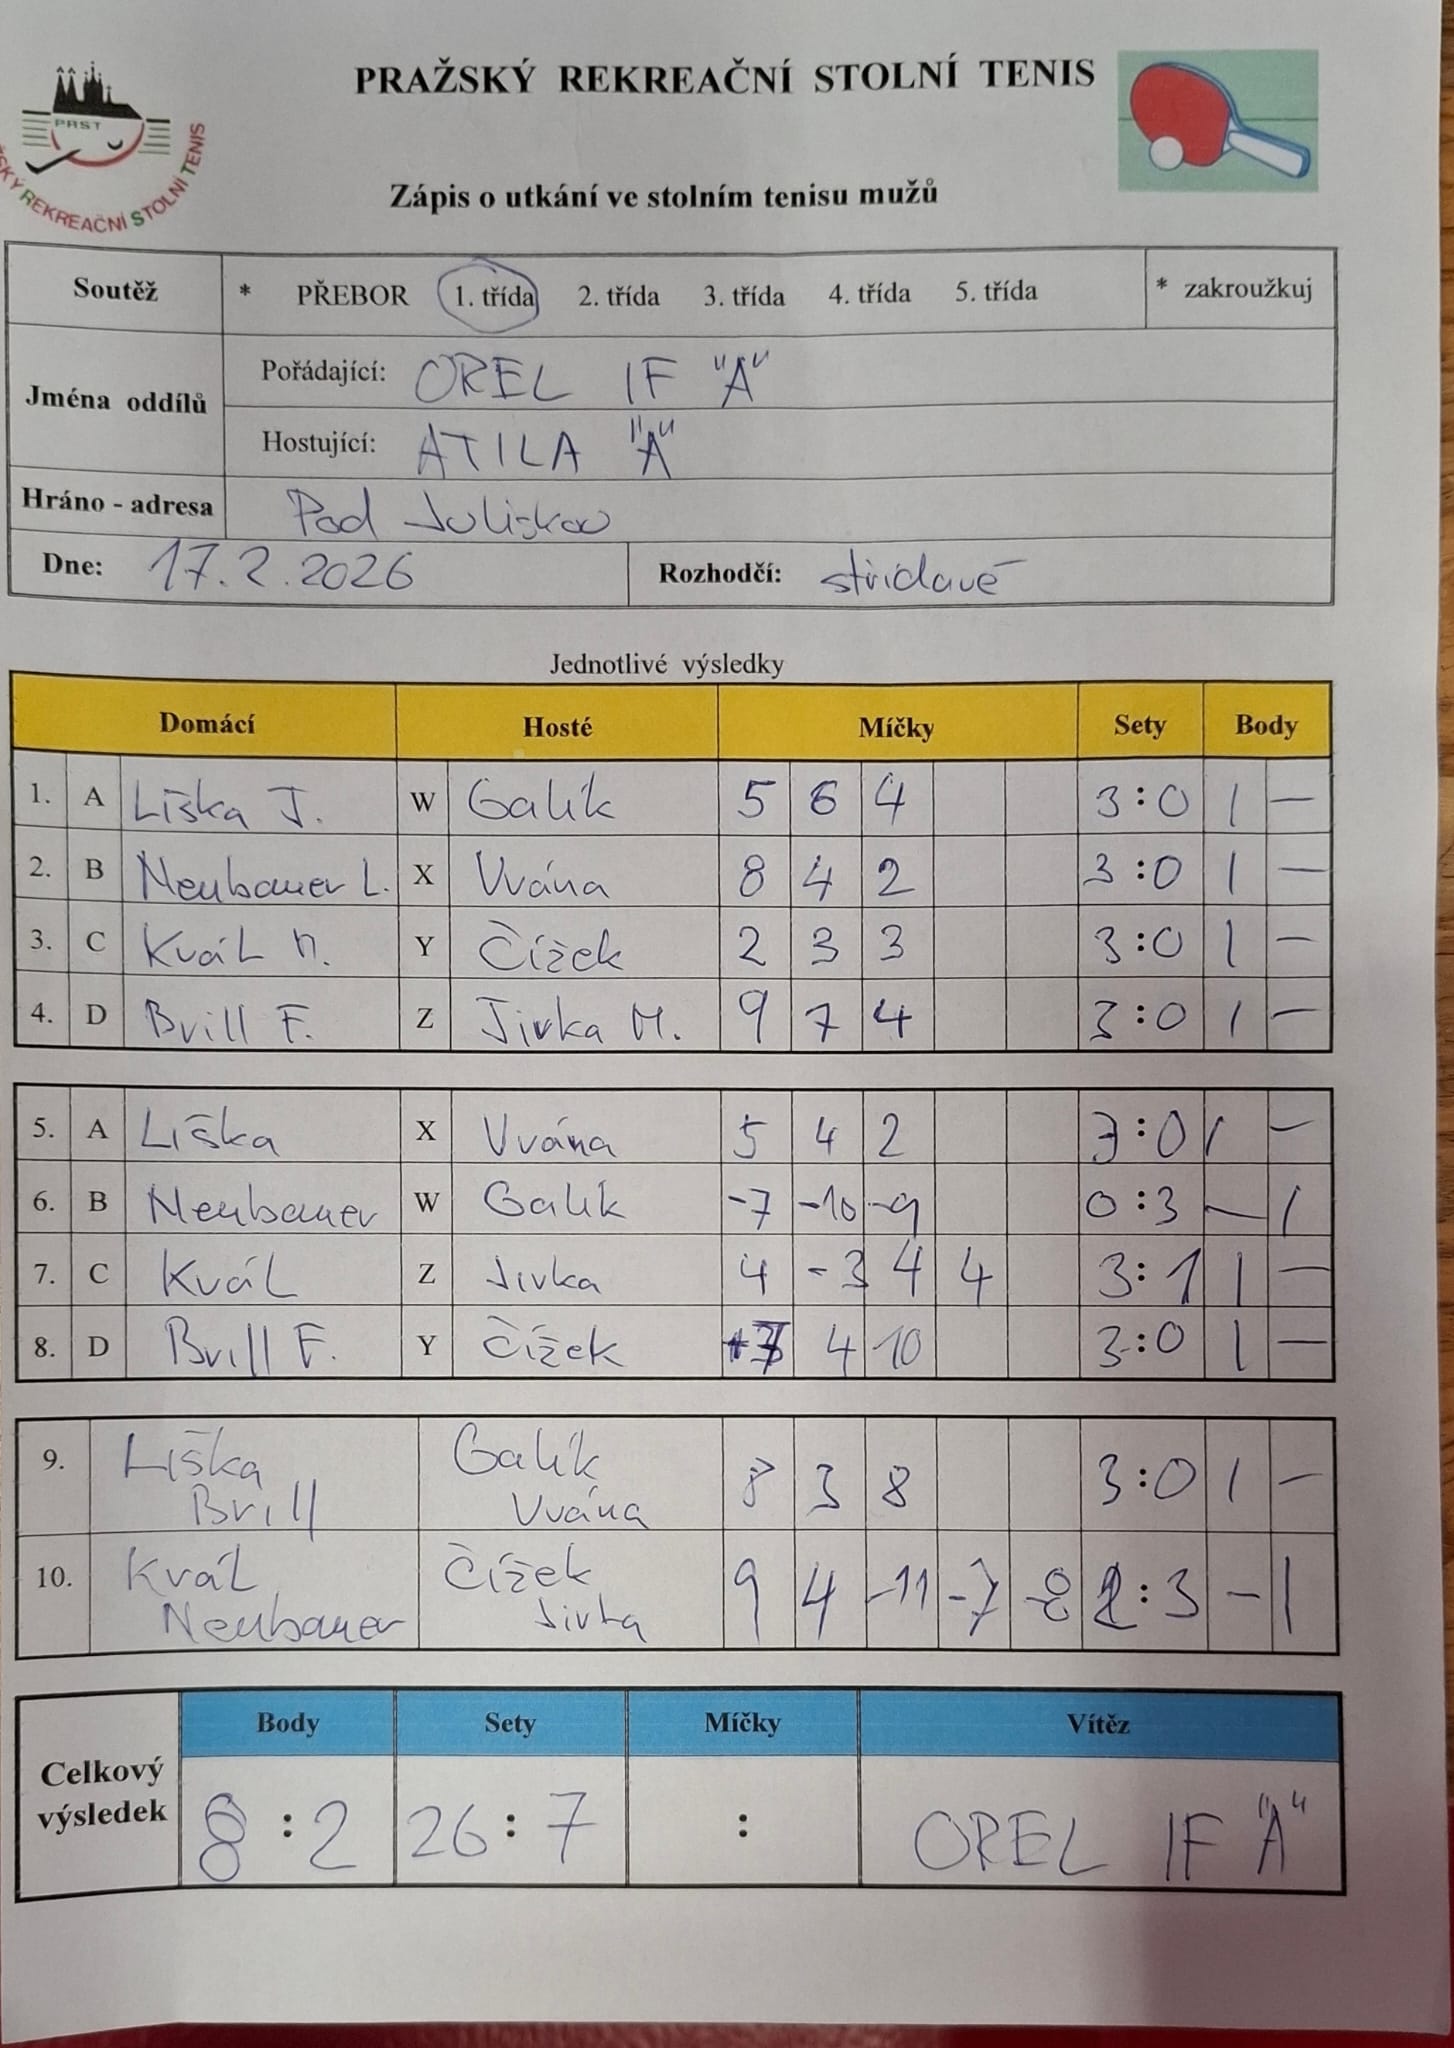 PRAŽSKÝ REKREAČNÍ STOLNÍ TENIS
PRST
SKÝ REKREAČNÍ STOLNÍ TENIS
Zápis o utkání ve stolním tenisu mužů
Soutěž * PŘEBOR 1. třída 2. třída 3. třída 4. třída 5. třída * zakroužkuj
Jména oddílů
Pořádající: OREL IF "A"
Hostující: ATILA "A"
Hráno - adresa Pod Juliskou
Dne: 17.2.2026 Rozhodčí: střídavě
Jednotlivé výsledky
Domácí Hosté Míčky Sety Body
1. A Líška J. W Galík 5 6 4 3:0 1 –
2. B Neubauer L. X Vrána 8 4 2 3:0 1 –
3. C Král M. Y Čížek 2 3 3 3:0 1 –
4. D Brill F. Z Jirka M. 9 7 4 3:0 1 –
5. A Líška X Vrána 5 4 2 3:0 1 –
6. B Neubauer W Galík -7 -10 -9 0:3 – 1
7. C Král Z Jirka 4 -3 4 4 3:1 1 –
8. D Brill F. Y Čížek 4 10 3:0 1 –
9. Líška Galík
Brill Vrána 8 3 8 3:0 1 –
10. Král Čížek
Neubauer Jirka 9 4 -11 -7 -8 2:3 – 1
Body Sety Míčky Vítěz
Celkový výsledek 8:2 26:7 : OREL IF "A"